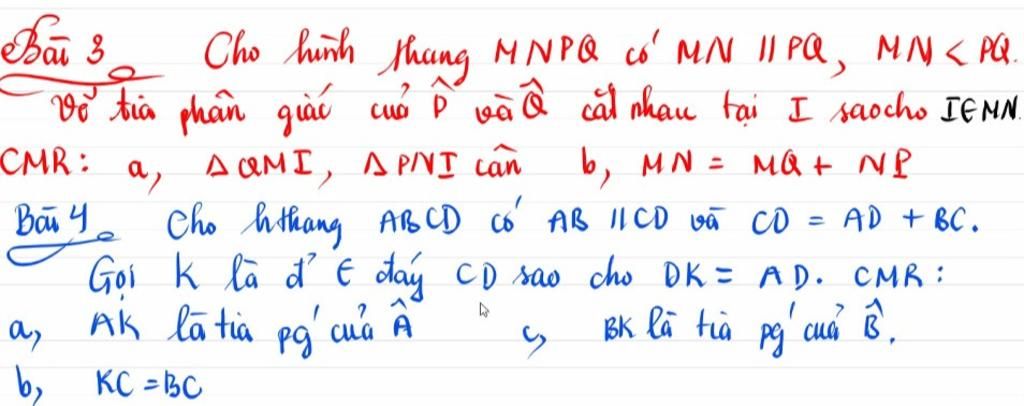 Bài 3 Cho hình thang MNPQ có MN // PQ, MN < PQ.
Vẽ tia phân giác của P̂ và Q̂ cắt nhau tại I sao cho I∈MN.
CMR: a, ΔQMI, ΔPNI cân b, MN = MQ + NP
Bài 4 Cho hthang ABCD có AB // CD và CD = AD + BC.
Gọi K là đ' ∈ đáy CD sao cho DK = AD. CMR:
a, AK là tia pg' của Â c, BK là tia pg' của B̂.
b, KC = BC